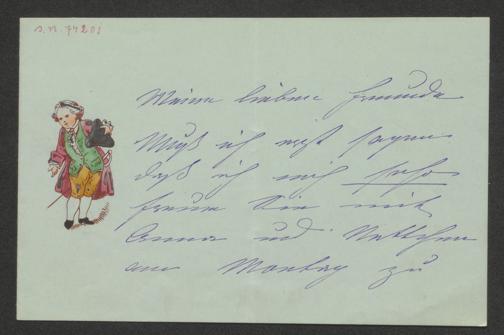 s. n. 74201
Meine lieben Freunde
Muß ich erst sagen
daß ich mich sehr
freue Sie mit
Anna und
am Montag zu